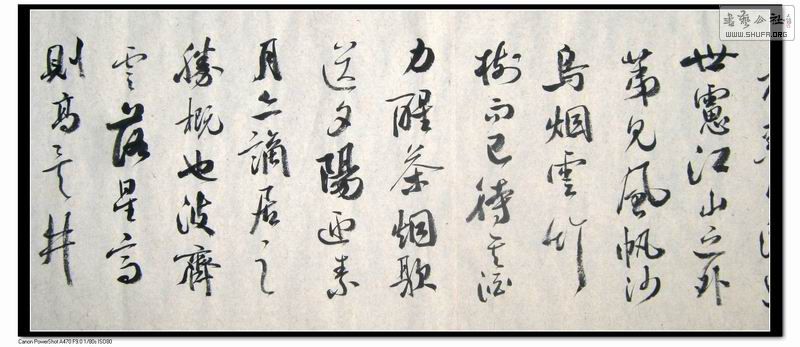 世慮江山之外
第見風帆沙
鳥烟雲竹
樹而已待其酒
力醒茶烟歇
送夕陽迎素
月亦謫居之
勝概也彼齊
雲落星高
則高矣井
書藝公社
WWW.SHUFA.ORG
Canon PowerShot A470 F9.0 1/80s ISO80